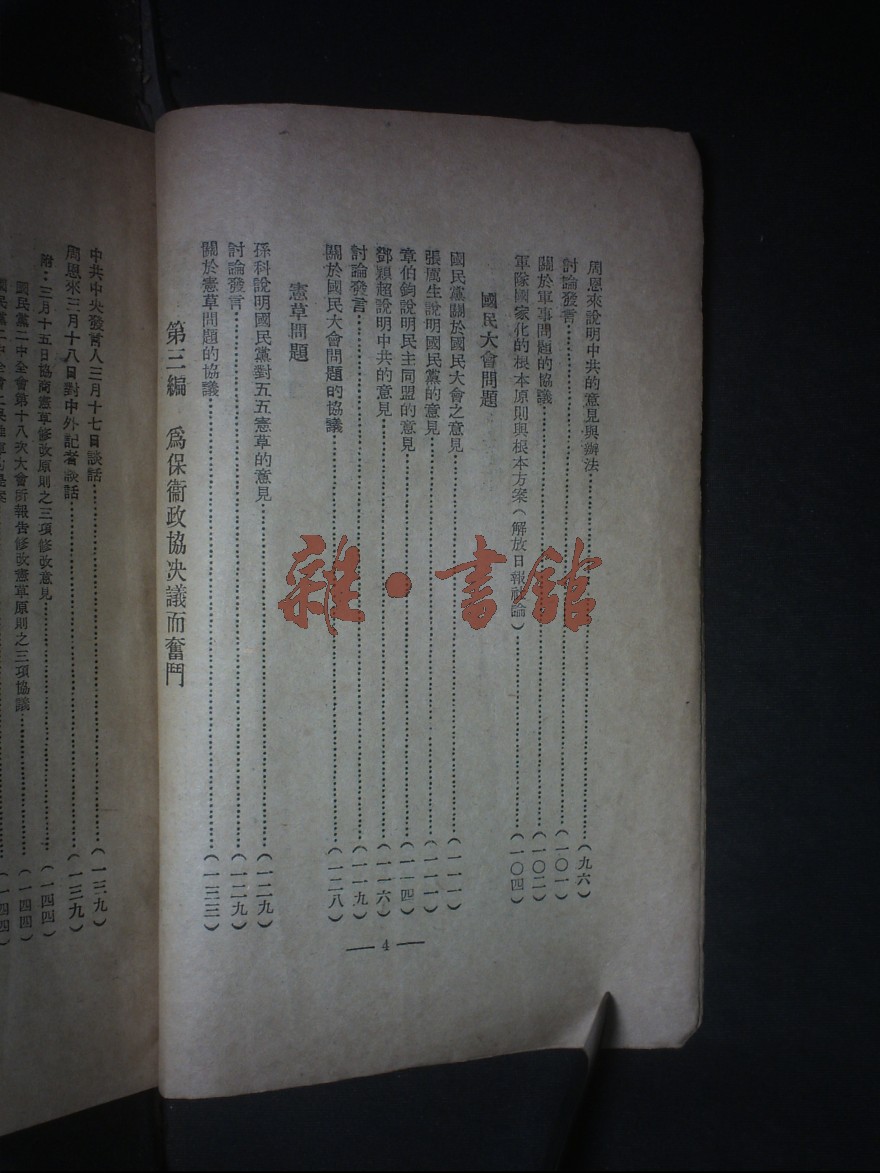 周恩來說明中共的意見與辦法…(九六)
討論發言…(一〇一)
關於軍事問題的協議…(一〇二)
軍隊國家化的根本原則與根本方案(解放日報社論)…(一〇四)
國民大會問題
國民黨關於國民大會之意見…(一一一)
張厲生說明國民黨的意見…(一一一)
章伯鈞說明民主同盟的意見…(一一四)
鄧穎超說明中共的意見…(一一六)
討論發言…(一一九)
關於國民大會問題的協議…(一二八)
憲草問題
孫科說明國民黨對五五憲草的意見…(一二九)
討論發言…(一二九)
關於憲草問題的協議…(一三三)
第三編 爲保衞政協决議而奮鬥
— 4 —
中共中央發言人三月十七日談話…(一三九)
周恩來三月十八日對中外記者談話…(一三九)
附:三月十五日協商憲草修改原則之三項修改意見…(一四四)
國民黨二中全會第十八次大會所報告修改憲草原則之三項協議…(一四四)
國民黨二中全會…(一四四)
雜·書館